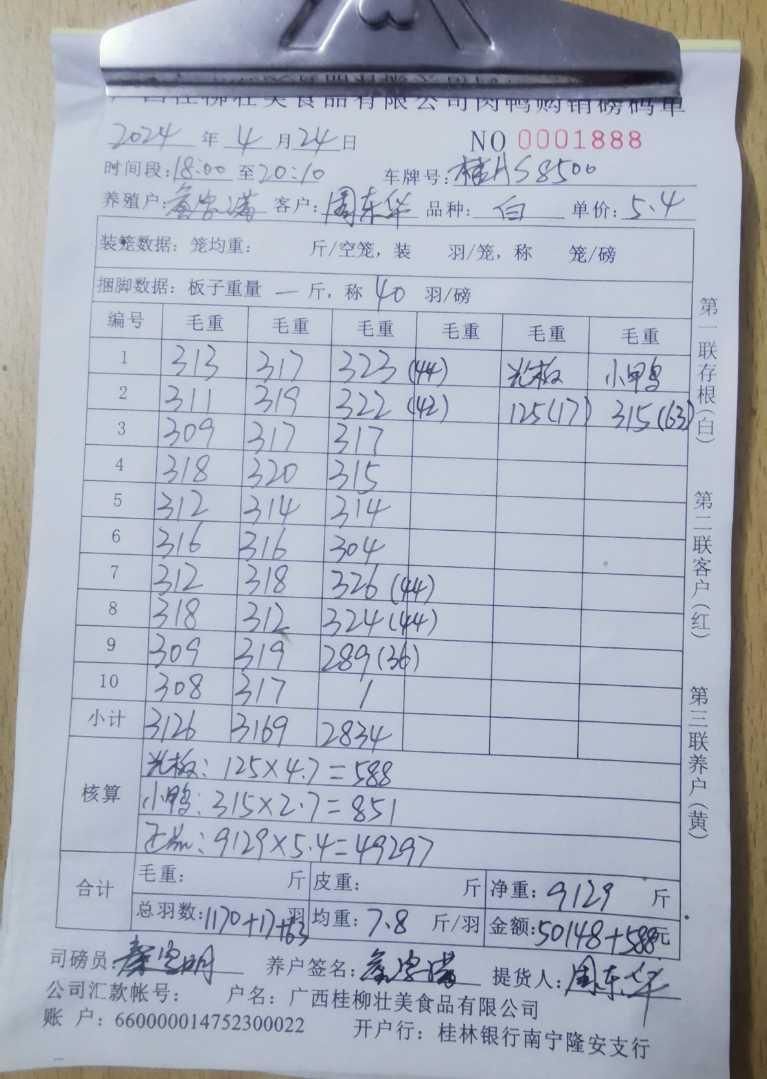 广西桂柳壮美食品有限公司肉鸭购销磅码单
2024 年 4 月 24 日 NO 0001888
时间段: 18:00 至 20:10 车牌号: 桂AS8500
养殖户: 客户: 周东华 品种: 白 单价: 5.4
装笼数据: 笼均重: 斤/空笼, 装 羽/笼, 称 笼/磅
捆脚数据: 板子重量 一 斤, 称 40 羽/磅
编号 毛重 毛重 毛重 毛重 毛重 毛重
1 313 317 323 (44) 光板 小鸭
2 311 319 322 (42) 125(17) 315(63)
3 309 317 317
4 318 320 315
5 312 314 314
6 316 316 304
7 312 318 326 (44)
8 318 312 324 (44)
9 309 319 289 (36)
10 308 317 /
小计 3126 3169 2834
核算
光板: 125×4.7=588
小鸭: 315×2.7=851
正品: 9129×5.4=49297
合计
毛重: 斤 皮重: 斤 净重: 9129 斤
总羽数: 1170+17+63 羽 均重: 7.8 斤/羽 金额: 50148+588元
司磅员: 养户签名: 提货人: 周东华
公司汇款帐号: 户名: 广西桂柳壮美食品有限公司
账 户: 660000014752300022 开户行: 桂林银行南宁隆安支行
第一联存根(白)
第二联客户(红)
第三联养户(黄)